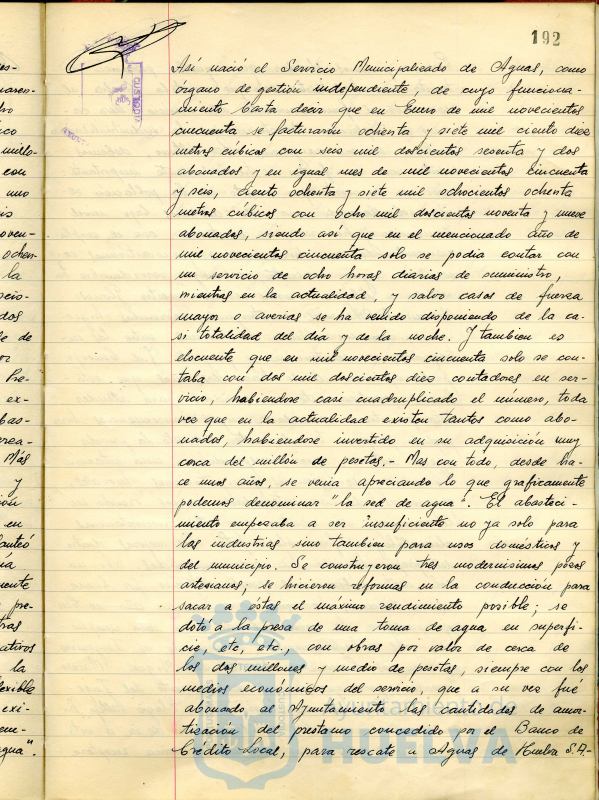 192
Así nació el Servicio Municipalizado de Aguas, como
órgano de gestión independiente, de cuyo funciona-
miento basta decir que en Enero de mil novecientos
cincuenta se facturaron ochenta y siete mil ciento diez
metros cúbicos con seis mil doscientos sesenta y dos
abonados y en igual mes de mil novecientos cincuenta
y seis, ciento ochenta y siete mil ochocientos ochenta
metros cúbicos con ocho mil doscientos noventa y nueve
abonados, siendo así que en el mencionado año de
mil novecientos cincuenta solo se podia contar con
un servicio de ocho horas diarias de suministro,
mientras en la actualidad, y salvo casos de fuerza
mayor o averias se ha venido disponiendo de la ca-
si totalidad del día y de la noche. Y tambien es
elocuente que en mil novecientos cincuenta solo se con-
taba con dos mil doscientos diez contadores en ser-
vicio, habiendose casi cuadruplicado el número, toda
vez que en la actualidad existen tantos como abo-
nados, habiendose invertido en su adquisición muy
cerca del millón de pesetas.- Mas con todo, desde ha-
ce unos años, se venia apreciando lo que graficamente
podemos denominar "la sed de agua". El abasteci-
miento empezaba a ser insuficiente no ya solo para
las industrias sino tambien para usos domésticos y
del municipio. Se construyeron tres modernisimos pozos
artesianos; se hicieron reformas en la conducción para
sacar a éstas el máximo rendimiento posible; se
dotó a la presa de una toma de agua en superfi-
cie, etc, etc., con obras por valor de cerca de
los dos millones y medio de pesetas, siempre con los
medios económicos del servicio, que a su vez fué
abonando al Ayuntamiento las cantidades de amor-
tización del prestamo concedido por el Banco de
Crédito Local, para rescate a Aguas de Huelva S.A.-
Ayuntamiento de
HUELVA